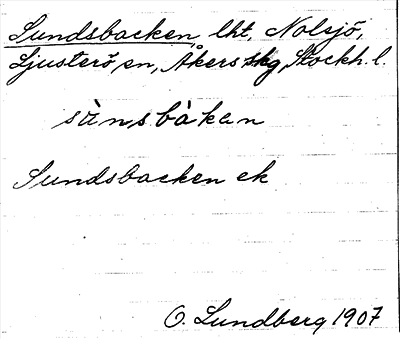 Sundsbacken, lht, Nolsjö,
Ljusterö sn, Åkers skg, Stockh. l.
sùnsbàkan
Sundsbacken ek
O. Lundberg 1907